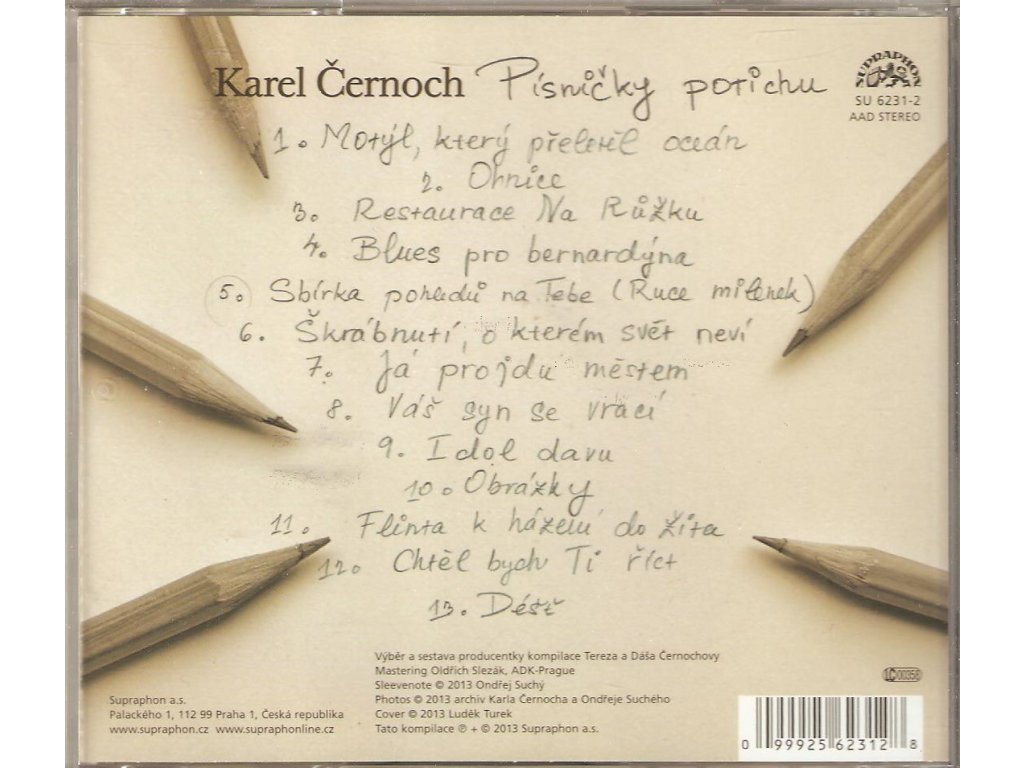 Karel Černoch Písničky potichu
SUPRAPHON
SU 6231-2
AAD STEREO
1. Motýl, který přeletěl oceán
2. Ornice
3. Restaurace Na Růžku
4. Blues pro bernardýna
5. Sbírka pohledů na Tebe (Ruce milenek)
6. Škrábnutí, o kterém svět neví
7. Já projdu městem
8. Váš syn se vrací
9. Idol davu
10. Obrázky
11. Flinta k házení do žita
12. Chtěl bych Ti říct
13. Déšť
Výběr a sestava producentky kompilace Tereza a Dáša Černochovy
Mastering Oldřich Slezák, ADK-Prague
Sleevenote © 2013 Ondřej Suchý
Photos © 2013 archiv Karla Černocha a Ondřeje Suchého
Cover © 2013 Luděk Turek
Tato kompilace ℗ + © 2013 Supraphon a.s.
Supraphon a.s.
Palackého 1, 112 99 Praha 1, Česká republika
www.supraphon.cz www.supraphonline.cz
LC 00358
0 99925 62312 8